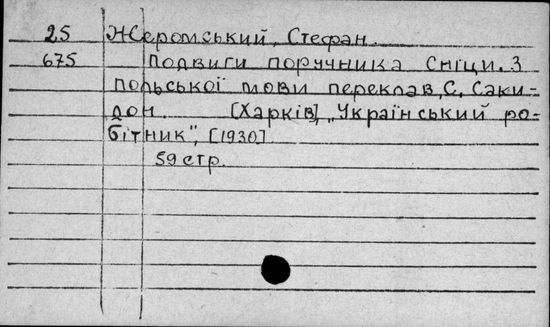 25 Жеромський, Стефан.
675 Подвиги поручника Сніци. З
польської мови переклав, С. Саки-
дон. [Харків], „Український ро-
бітник", [1930]
59 стр.